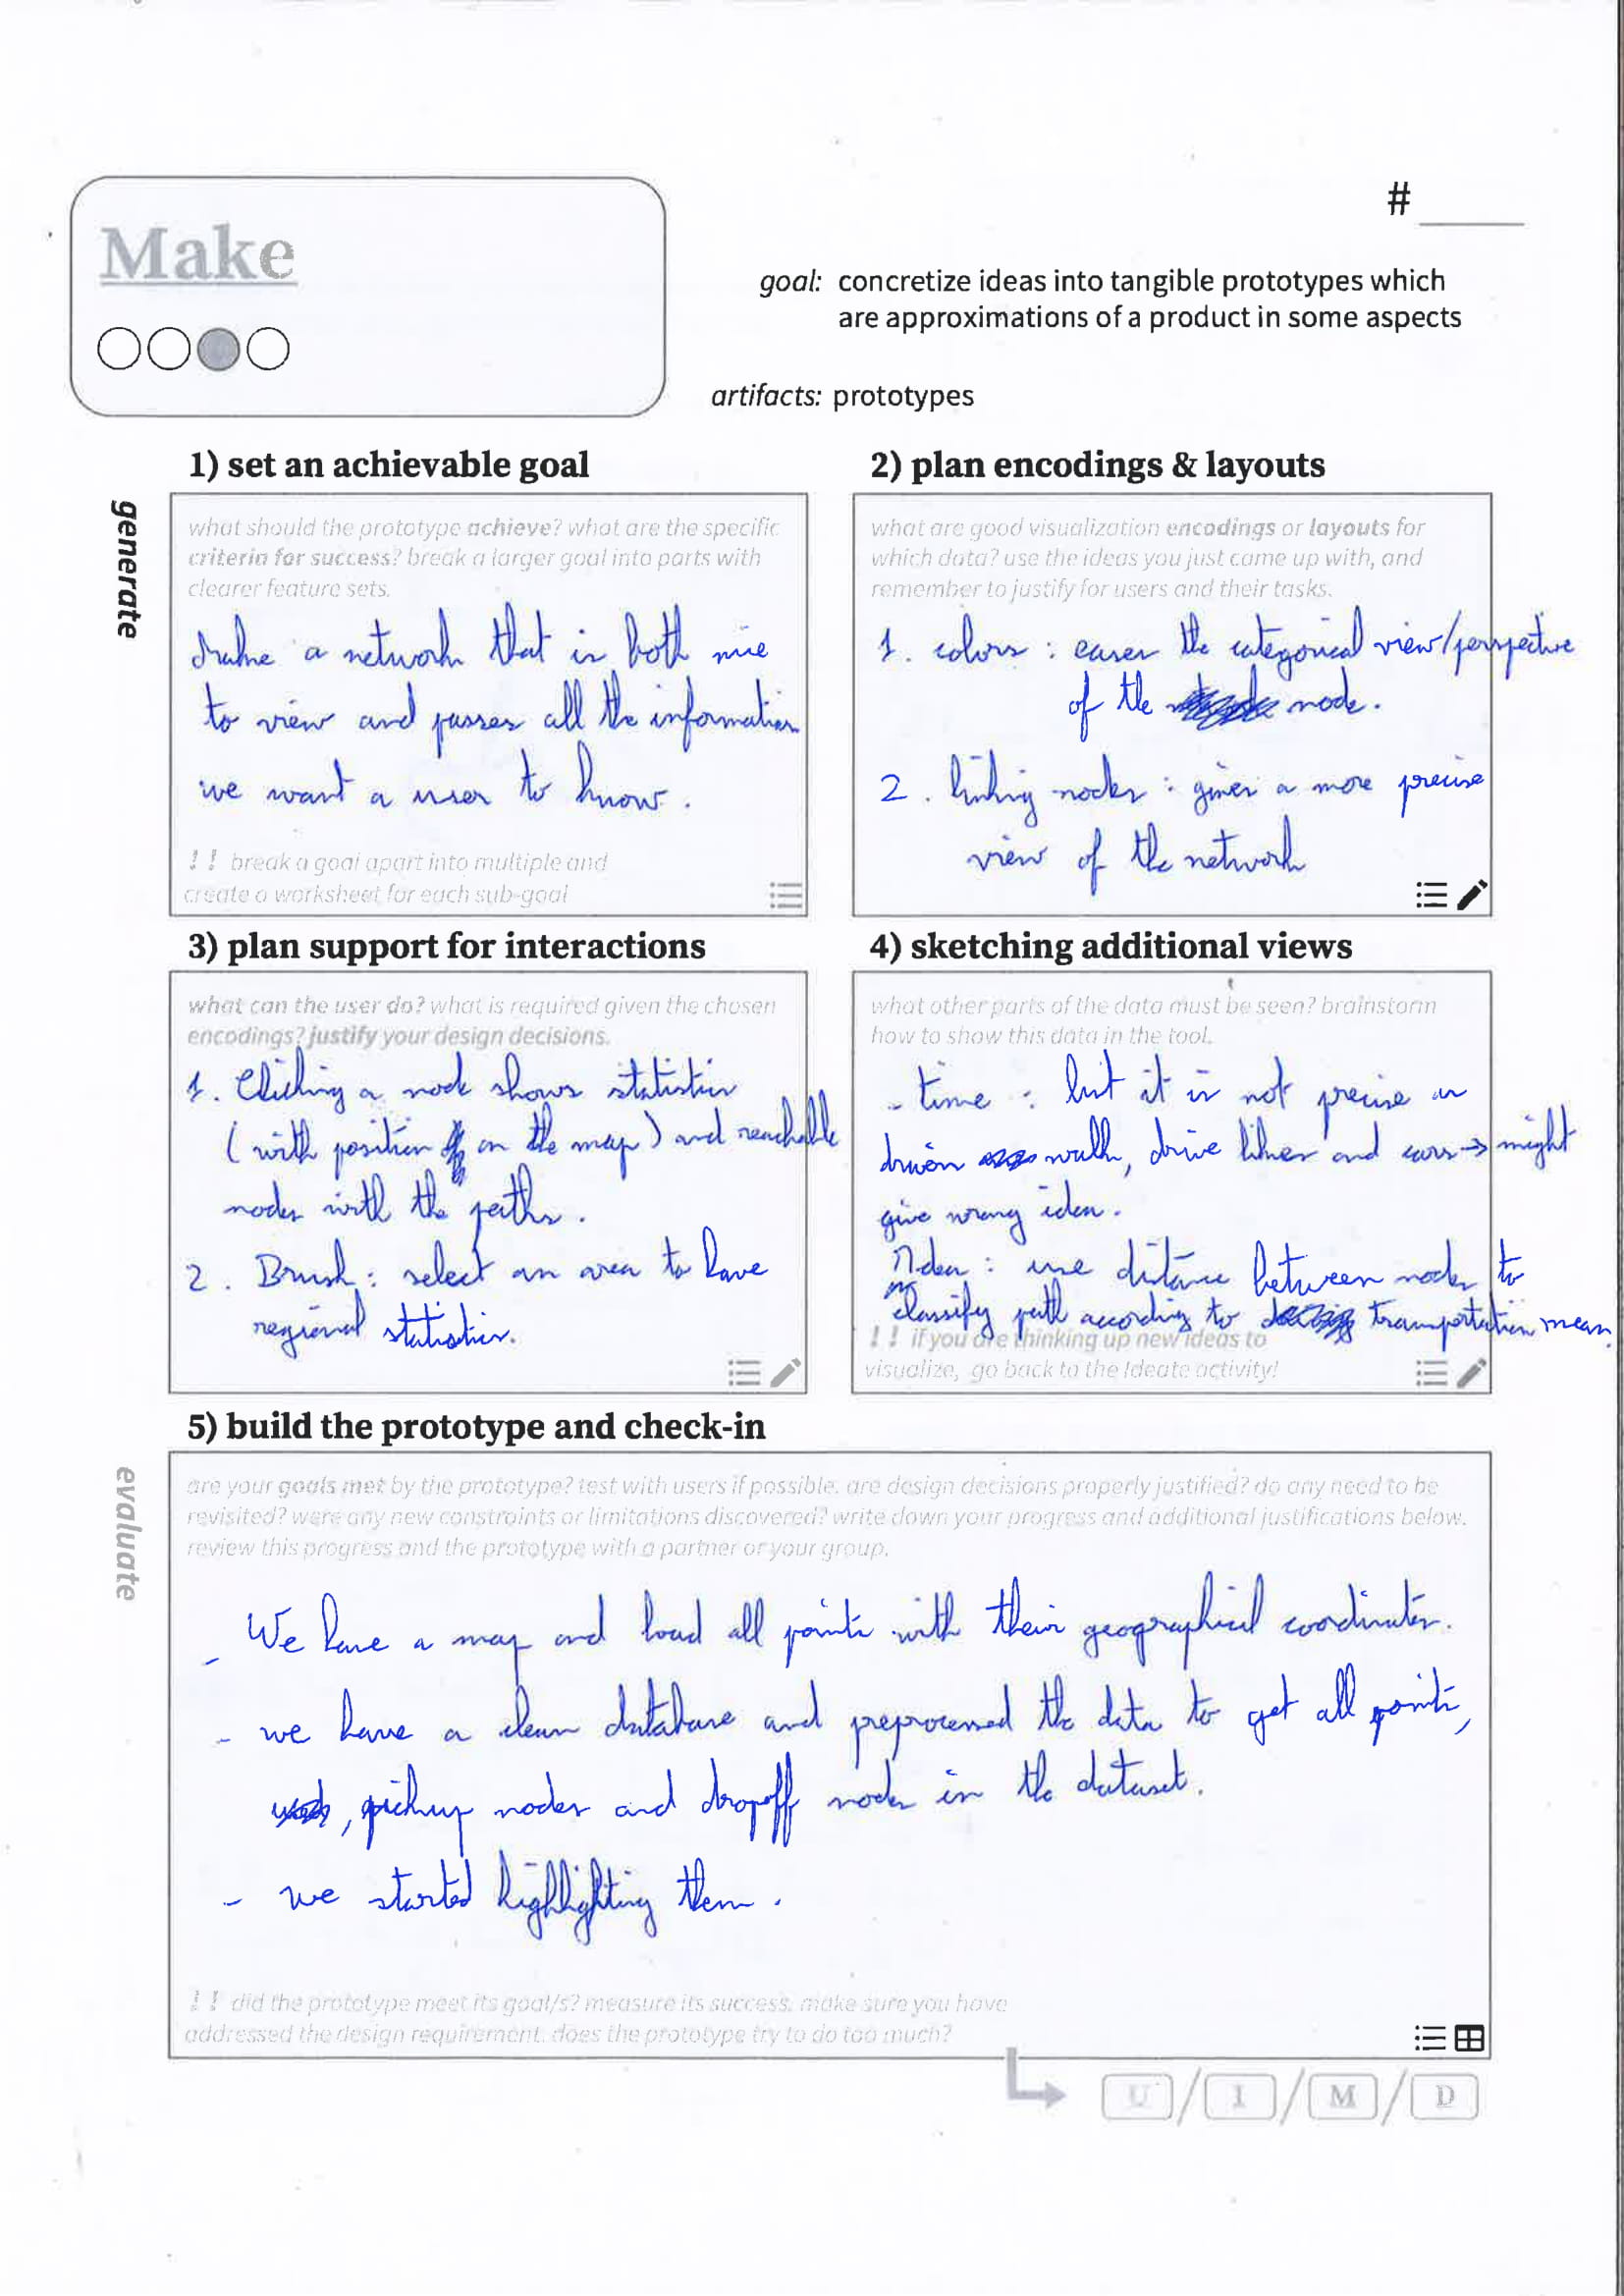 Make
#
goal: concretize ideas into tangible prototypes which
are approximations of a product in some aspects
artifacts: prototypes
generate
1) set an achievable goal
what should the prototype achieve? what are the specific
criteria for success? break a larger goal into parts with
clearer feature sets.
a network that is both nice
to view and passes all the information
we want a user to know.
!! break a goal apart into multiple and
create a worksheet for each sub-goal
2) plan encodings & layouts
what are good visualization encodings or layouts for
which data? use the ideas you just came up with, and
remember to justify for users and their tasks.
1. colors : eases the categorical view/perspective
of the node.
2. linking nodes : gives a more precise
view of the network
3) plan support for interactions
what can the user do? what is required given the chosen
encodings? justify your design decisions.
1. Clicking a node shows statistics
(with position on the map) and reachable
nodes with the paths.
2. Brush : select an area to have
regional statistics.
4) sketching additional views
what other parts of the data must be seen? brainstorm
how to show this data in the tool.
- time : but it is not precise as
walk, drive bikes and cars → might
give wrong idea.
Idea : use distance between nodes to
classify path according to transportation mean.
!! if you are thinking up new ideas to
visualize, go back to the Ideate activity!
evaluate
5) build the prototype and check-in
are your goals met by the prototype? test with users if possible. are design decisions properly justified? do any need to be
revisited? were any new constraints or limitations discovered? write down your progress and additional justifications below.
review this progress and the prototype with a partner or your group.
- We have a map and load all points with their geographical coordinates.
- we have a clean database and preprocessed the data to get all points,
, pickup nodes and dropoff nodes in the dataset.
- we started highlighting them.
!! did the prototype meet its goal/s? measure its success. make sure you have
addressed the design requirement. does the prototype try to do too much?
U / I / M / D